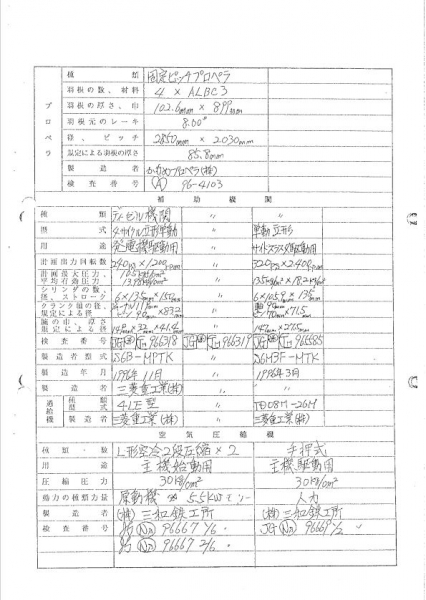 プロペラ
種類 固定ピッチプロペラ
羽根の数、材料 4 × ALBC3
羽根の厚さ、巾 102.6mm × 899mm
羽根元のレーキ 8.00°
径、ピッチ 2850mm × 2030mm
規定による羽根の厚さ 85.8mm
製造者 かもめプロペラ(株)
検査番号 (A) 96-4103
補助機関
種類 ディーゼル機関 〃 〃
型式 4サイクル立形単動 〃 単動立形
用途 発電機駆動用 〃 サイドスラスタ駆動用
計画出力回転数 240PS×1200rpm 〃 320PS×2400rpm
計画最大圧力、平均有効圧力
シリンダの数、径、ストローク 6×135mm×150mm 〃
クランク軸の径、規定による径
腕の巾、厚さ、規定による径
検査番号 966318 966319 966585
製造者型式 S6B-MPTK 〃 S6M3F-MTK
製造年月 1996年11月 〃 1996年3月
製造者 三菱重工業(株) 〃 〃
過給機
種類型式 4LE型 〃 TD08H-26M
製造者 三菱重工業(株) 〃 三菱重工業(株)
空気圧縮機
種類・数 L形空冷2段圧縮×2 手押式
用途 主機始動用 主機駆動用
圧縮圧力 30kg/cm² 30kg/cm²
動力の種類力量 原動機 5.5kWモーター 人力
製造者 (株)三和鉄工所 (株)三和鉄工所
検査番号 JG NO 96667 1/6 JG NO 96669 1/2
JG NO 96667 2/6